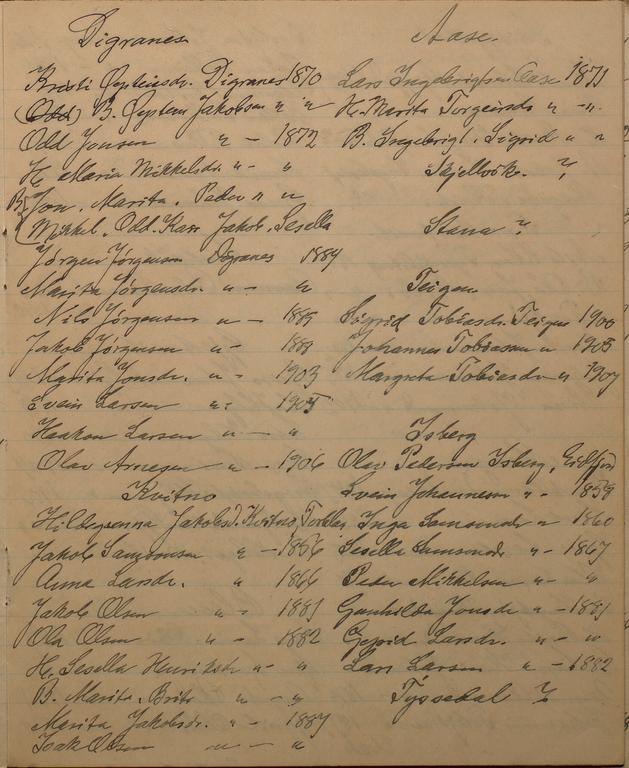 Digranes
Kristi Øysteinsdr. Digranes 1870
(Odd) B. Øystein Jakobsen " "
Odd Jonsen " - 1872
H. Maria Mikkelsdr. " - "
B. Jon, Marita, Peder " "
Mikkel, Odd, Kari, Jakob, Sesella
Jørgen Jørgensen Digranes 1884
Marita Jørgensdr. " - "
Nils Jørgensen " -
Jakob Jørgensen " -
Marita Jonsdr. " - 1903
Svein Larsen " - 1905
Haakon Larsen " - "
Olav Arnesen " - 1906
Kvitno
Jakobsd. Kvitno,
Jakob Samsonsen " - 1856
Anna Larsdr. " 1866
Jakob Olsen " - 1881
Ola Olsen " - 1882
H. Sesella Henriksdr " - "
B. Marita, Brita " - "
Marita Jakobsdr. " - 1887
Isak Olsen " - "
Aase.
Lars Ingebrigtsen Aase 1871
H. Marita Torgeirsdr " - "
B. Ingebrigt, Sigrid " "
Skjelvik. ?
Stana ?
Teigen
Sigrid Tobiasdr. Teigen 1900
Johannes Tobiassen " 1905
Margreta Tobiasdr " 1907
Isberg
Olav Pedersen Isberg, Eidfjord
Svein Johannesen " - 1859
Inga Samsonsdr " 1860
Sesella Samsonsdr " - 1867
Peder Mikkelsen " - "
Gunhilda Jonsdr " - 1881
Larsdr. " - "
Lars Larsen " - 1882
Tyssedal ?